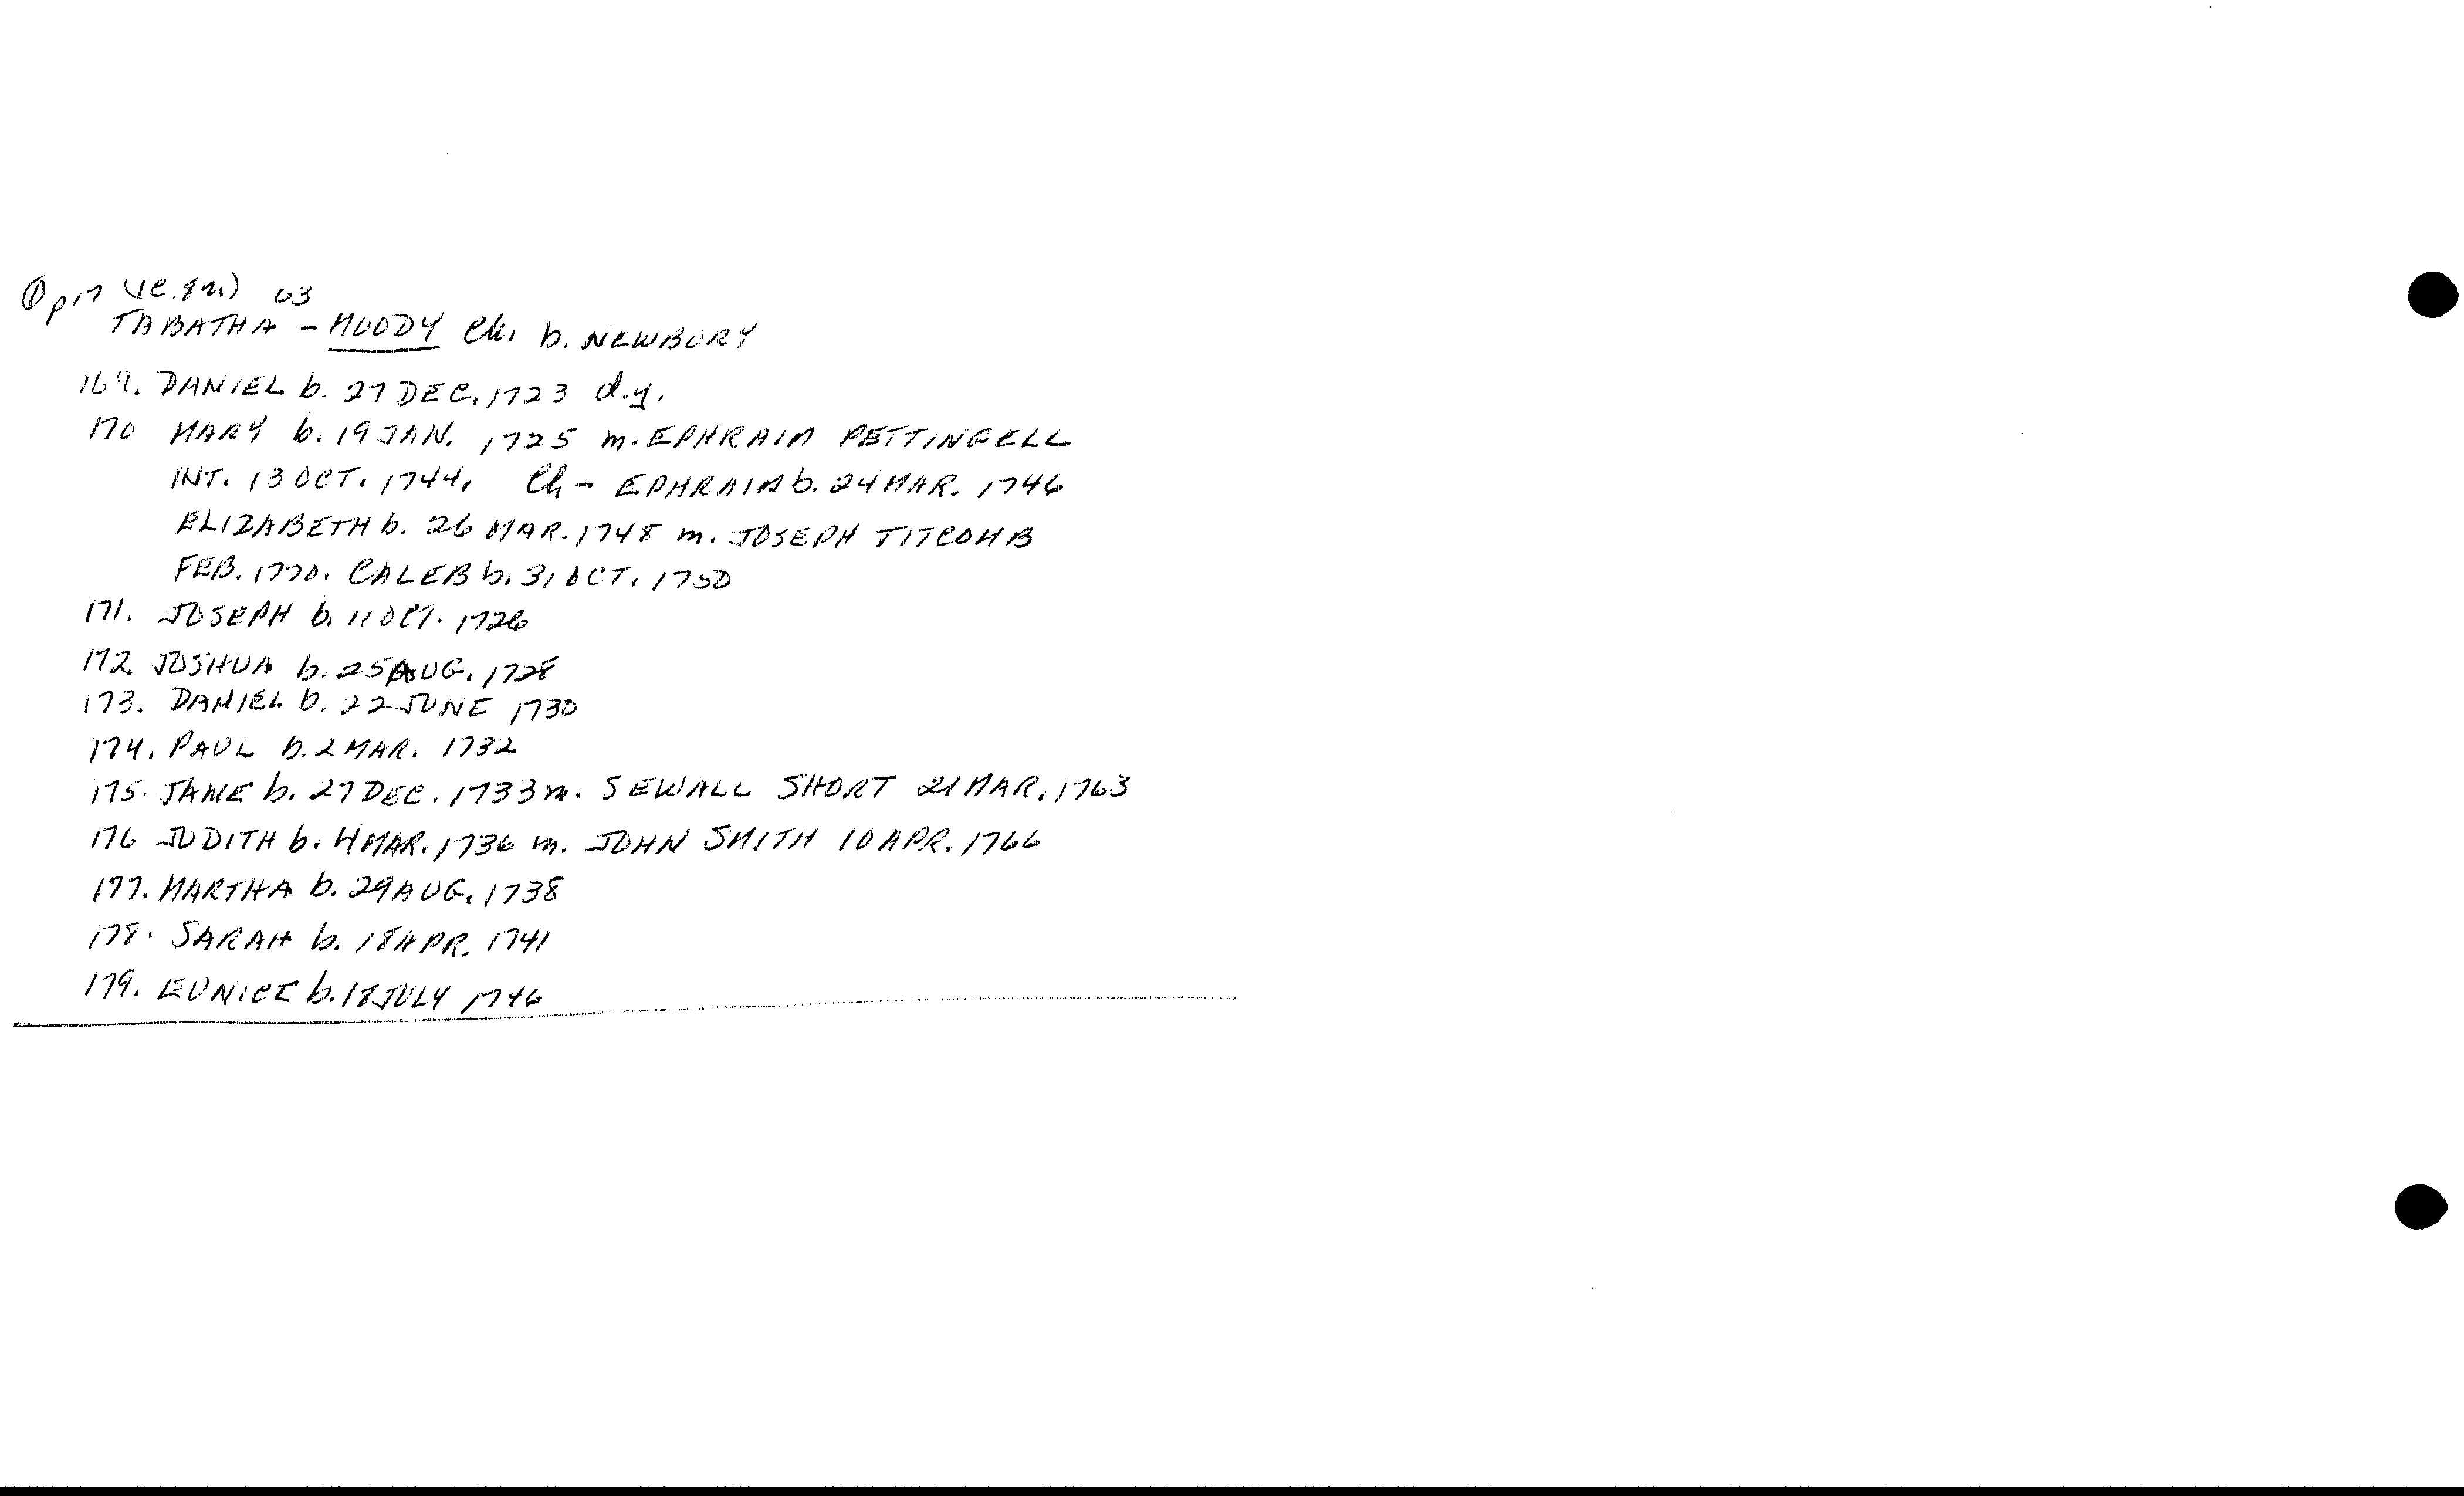 ① p17 63
TABATHA - MOODY Ch. b. NEWBURY
169. DANIEL b. 27 DEC. 1723 d.y.
170 MARY b. 19 JAN. 1725 m. EPHRAIM PETTINGELL
INT. 13 OCT. 1744. Ch - EPHRAIM b. 24 MAR. 1746
ELIZABETH b. 26 MAR. 1748 m. JOSEPH TITCOMB
FEB. 1770. CALEB b. 31 OCT. 1750
171. JOSEPH b. 11 OCT. 1726
172. JOSHUA b. 25 AUG. 1728
173. DANIEL b. 22 JUNE 1730
174. PAUL b. 2 MAR. 1732
175. JANE b. 27 DEC. 1733 m. SEWALL SHORT 21 MAR. 1763
176 JUDITH b. 4 MAR. 1736 m. JOHN SMITH 10 APR. 1766
177. MARTHA b. 29 AUG. 1738
178. SARAH b. 18 APR. 1741
179. EUNICE b. 18 JULY 1746